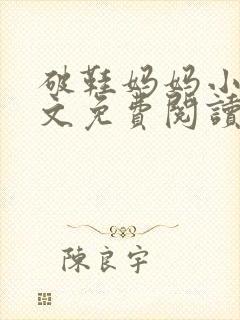 破鞋妈妈小
文免費閱讀
陳良宇